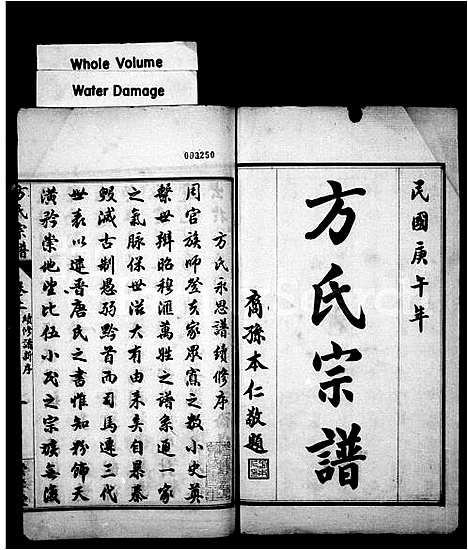 Whole Volume
Water Damage
003250
民國庚午年
方氏宗譜
裔孫本仁敬題
方氏永思譜續修序
周官族師登夫家眾寡之數小史奠
繫世辨昭穆滙萬姓之譜系通一家
之氣脉保世滋大有由來矣自暴秦
毀滅古制愚弱黔首而司馬遷三代
世表以逮晉唐氏之書惟知粉飾天
潢矜崇地望比伍小民之宗族無復
方氏宗譜
卷之一 續修譜新序
一